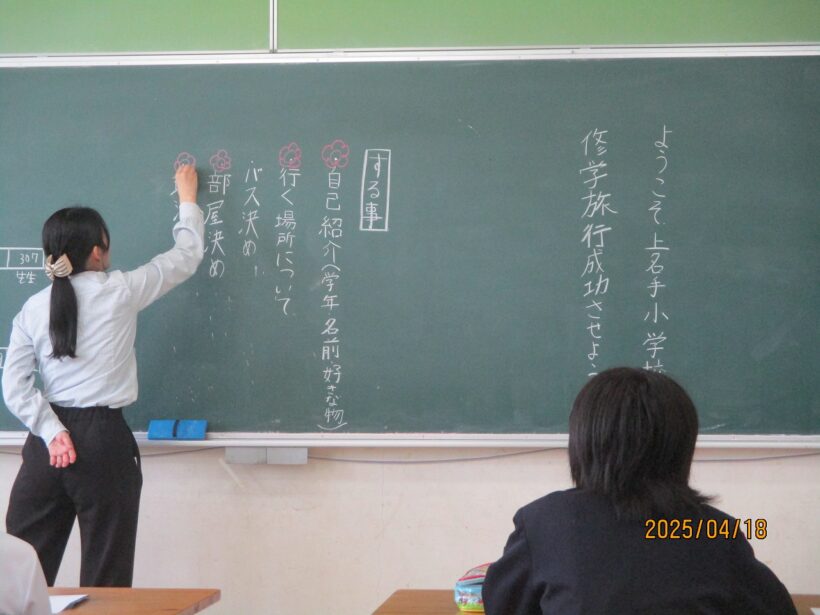 ようこそ、上名手小学校
修学旅行成功させよう
する事
・自己紹介(学年、名前、好きな物)
・行く場所について
・バス決め
・部屋決め
307
2025/04/18